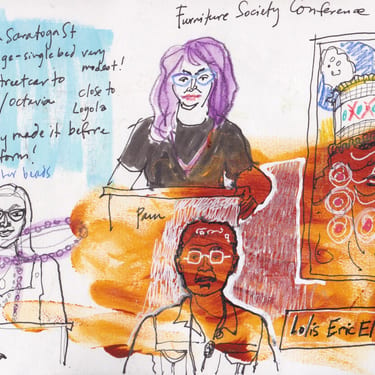 Furniture Society Conference
Saratoga St
ge-single bed very
modest!
treetcar to
/octavia
close to
Loyola
y made it before
form!
beads
Pam
Lolis Eric El